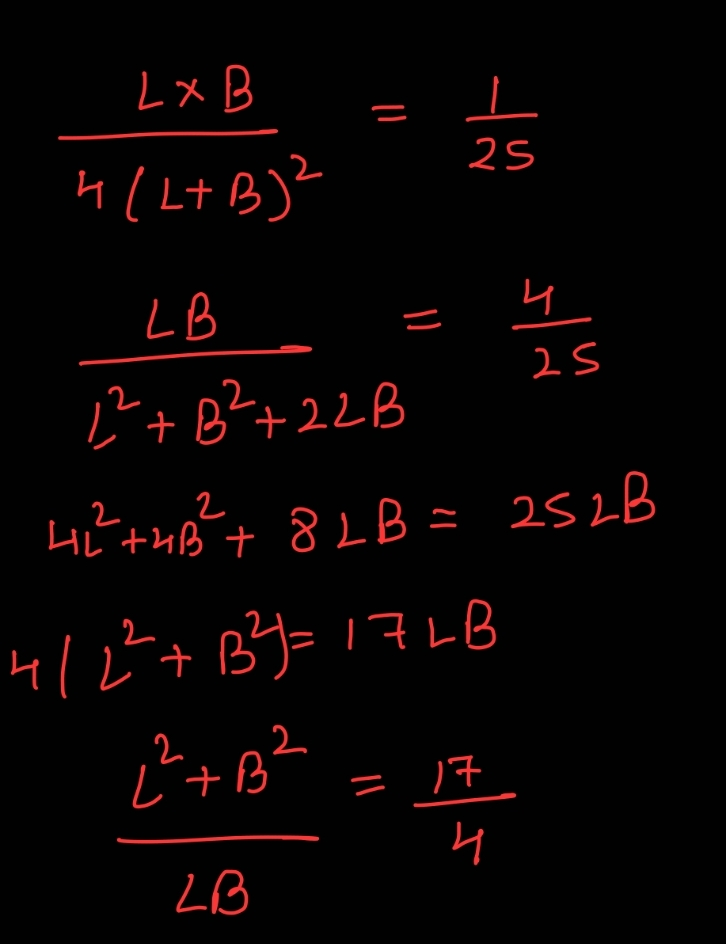 L × B / 4 (L + B)² = 1 / 25
LB / L² + B² + 2LB = 4 / 25
4L² + 4B² + 8LB = 25LB
4(L² + B²) = 17LB
L² + B² / LB = 17 / 4